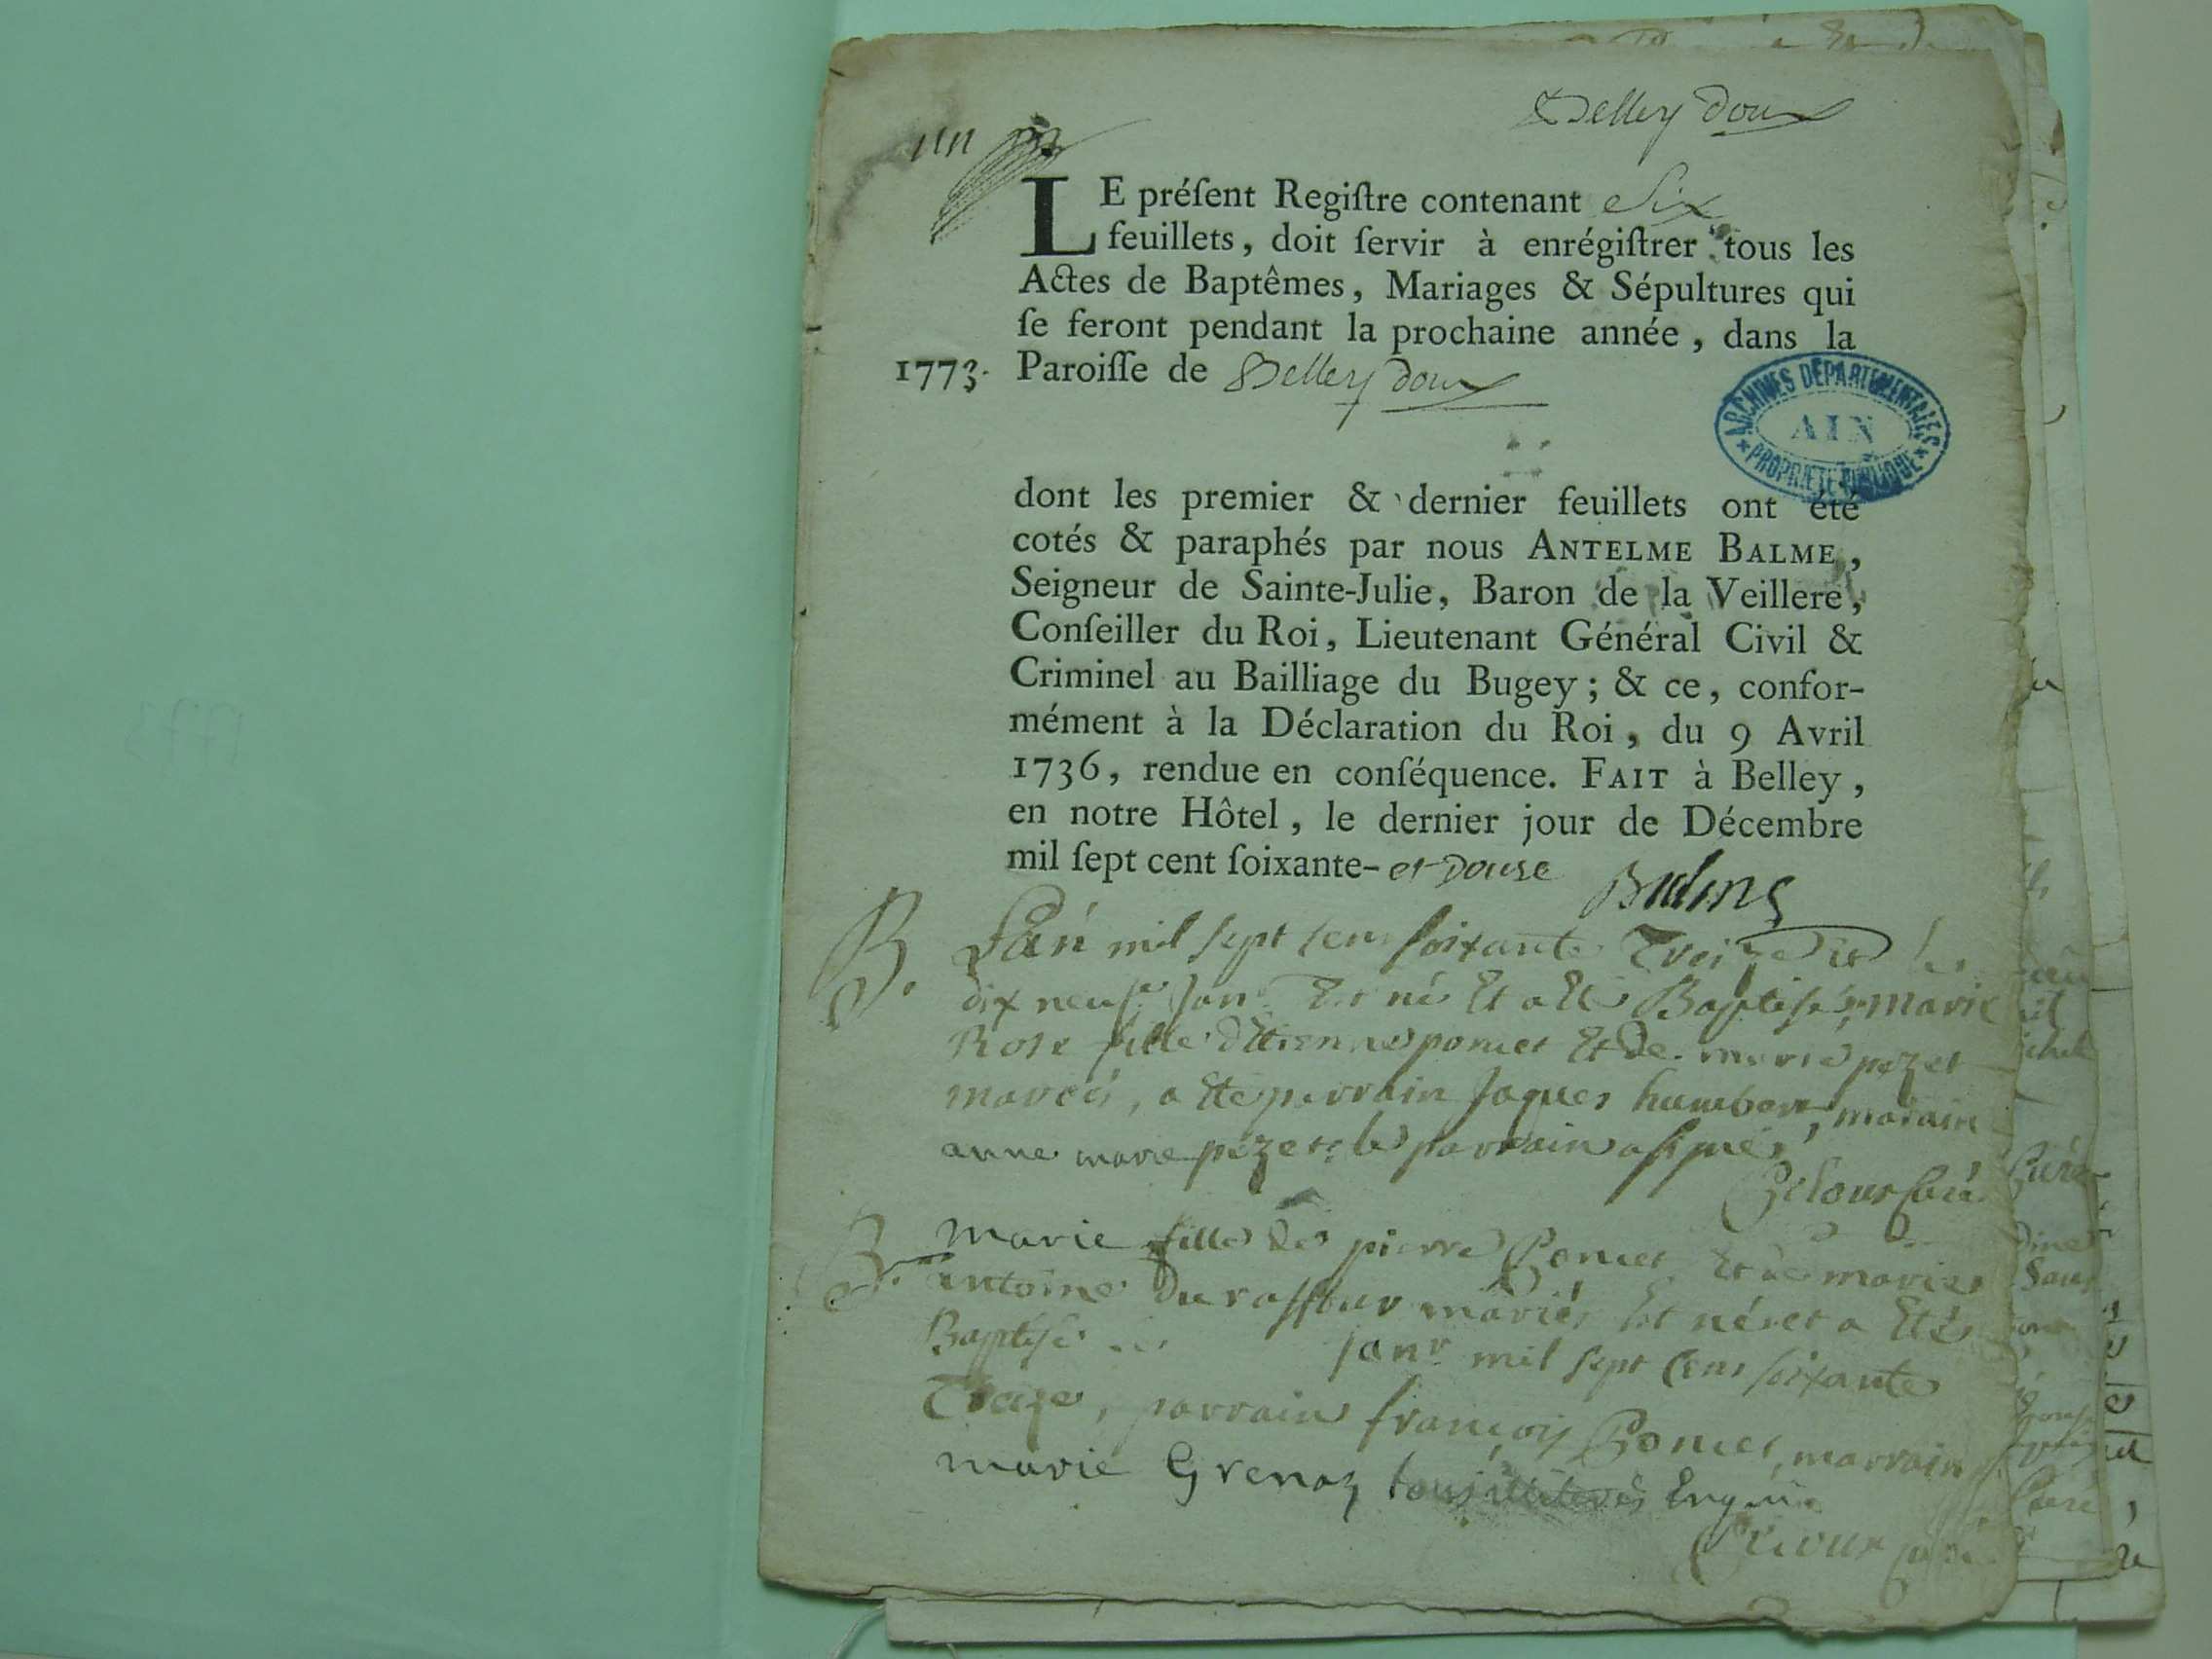 Belley doux
LE préſent Regiſtre contenant Six
feuillets, doit ſervir à enrégiſtrer tous les
Actes de Baptêmes, Mariages & Sépultures qui
ſe feront pendant la prochaine année, dans la
1773. Paroiſſe de Belley doux
ARCHIVES DEPARTEMENTALES
AIN
PROPRIETE PUBLIQUE
dont les premier & dernier feuillets ont été
cotés & paraphés par nous ANTELME BALME,
Seigneur de Sainte-Julie, Baron de la Veillere,
Conſeiller du Roi, Lieutenant Général Civil &
Criminel au Bailliage du Bugey; & ce, confor-
mément à la Déclaration du Roi, du 9 Avril
1736, rendue en conſéquence. FAIT à Belley,
en notre Hôtel, le dernier jour de Décembre
mil ſept cent ſoixante- et douse
Balme
B. L'an mil sept cens soixante Treize et le
dix neuf Janr Est né Et a Eté Baptisé marie
Rose fille d'Etienne poncet Et de marie pezet
mariés, a Eté parrain Jaques humbert, maraine
anne marie pezet le parrain a signé
Curé
B. marie fille de pierre Poncet Et de marie
antoine Duraffour mariés Est née et a Eté
Baptisé le janr mil sept Cens soixante
Treize, parrain françois Poncet, marraine
marie Grenoz tous illiterés Enquis
Curé